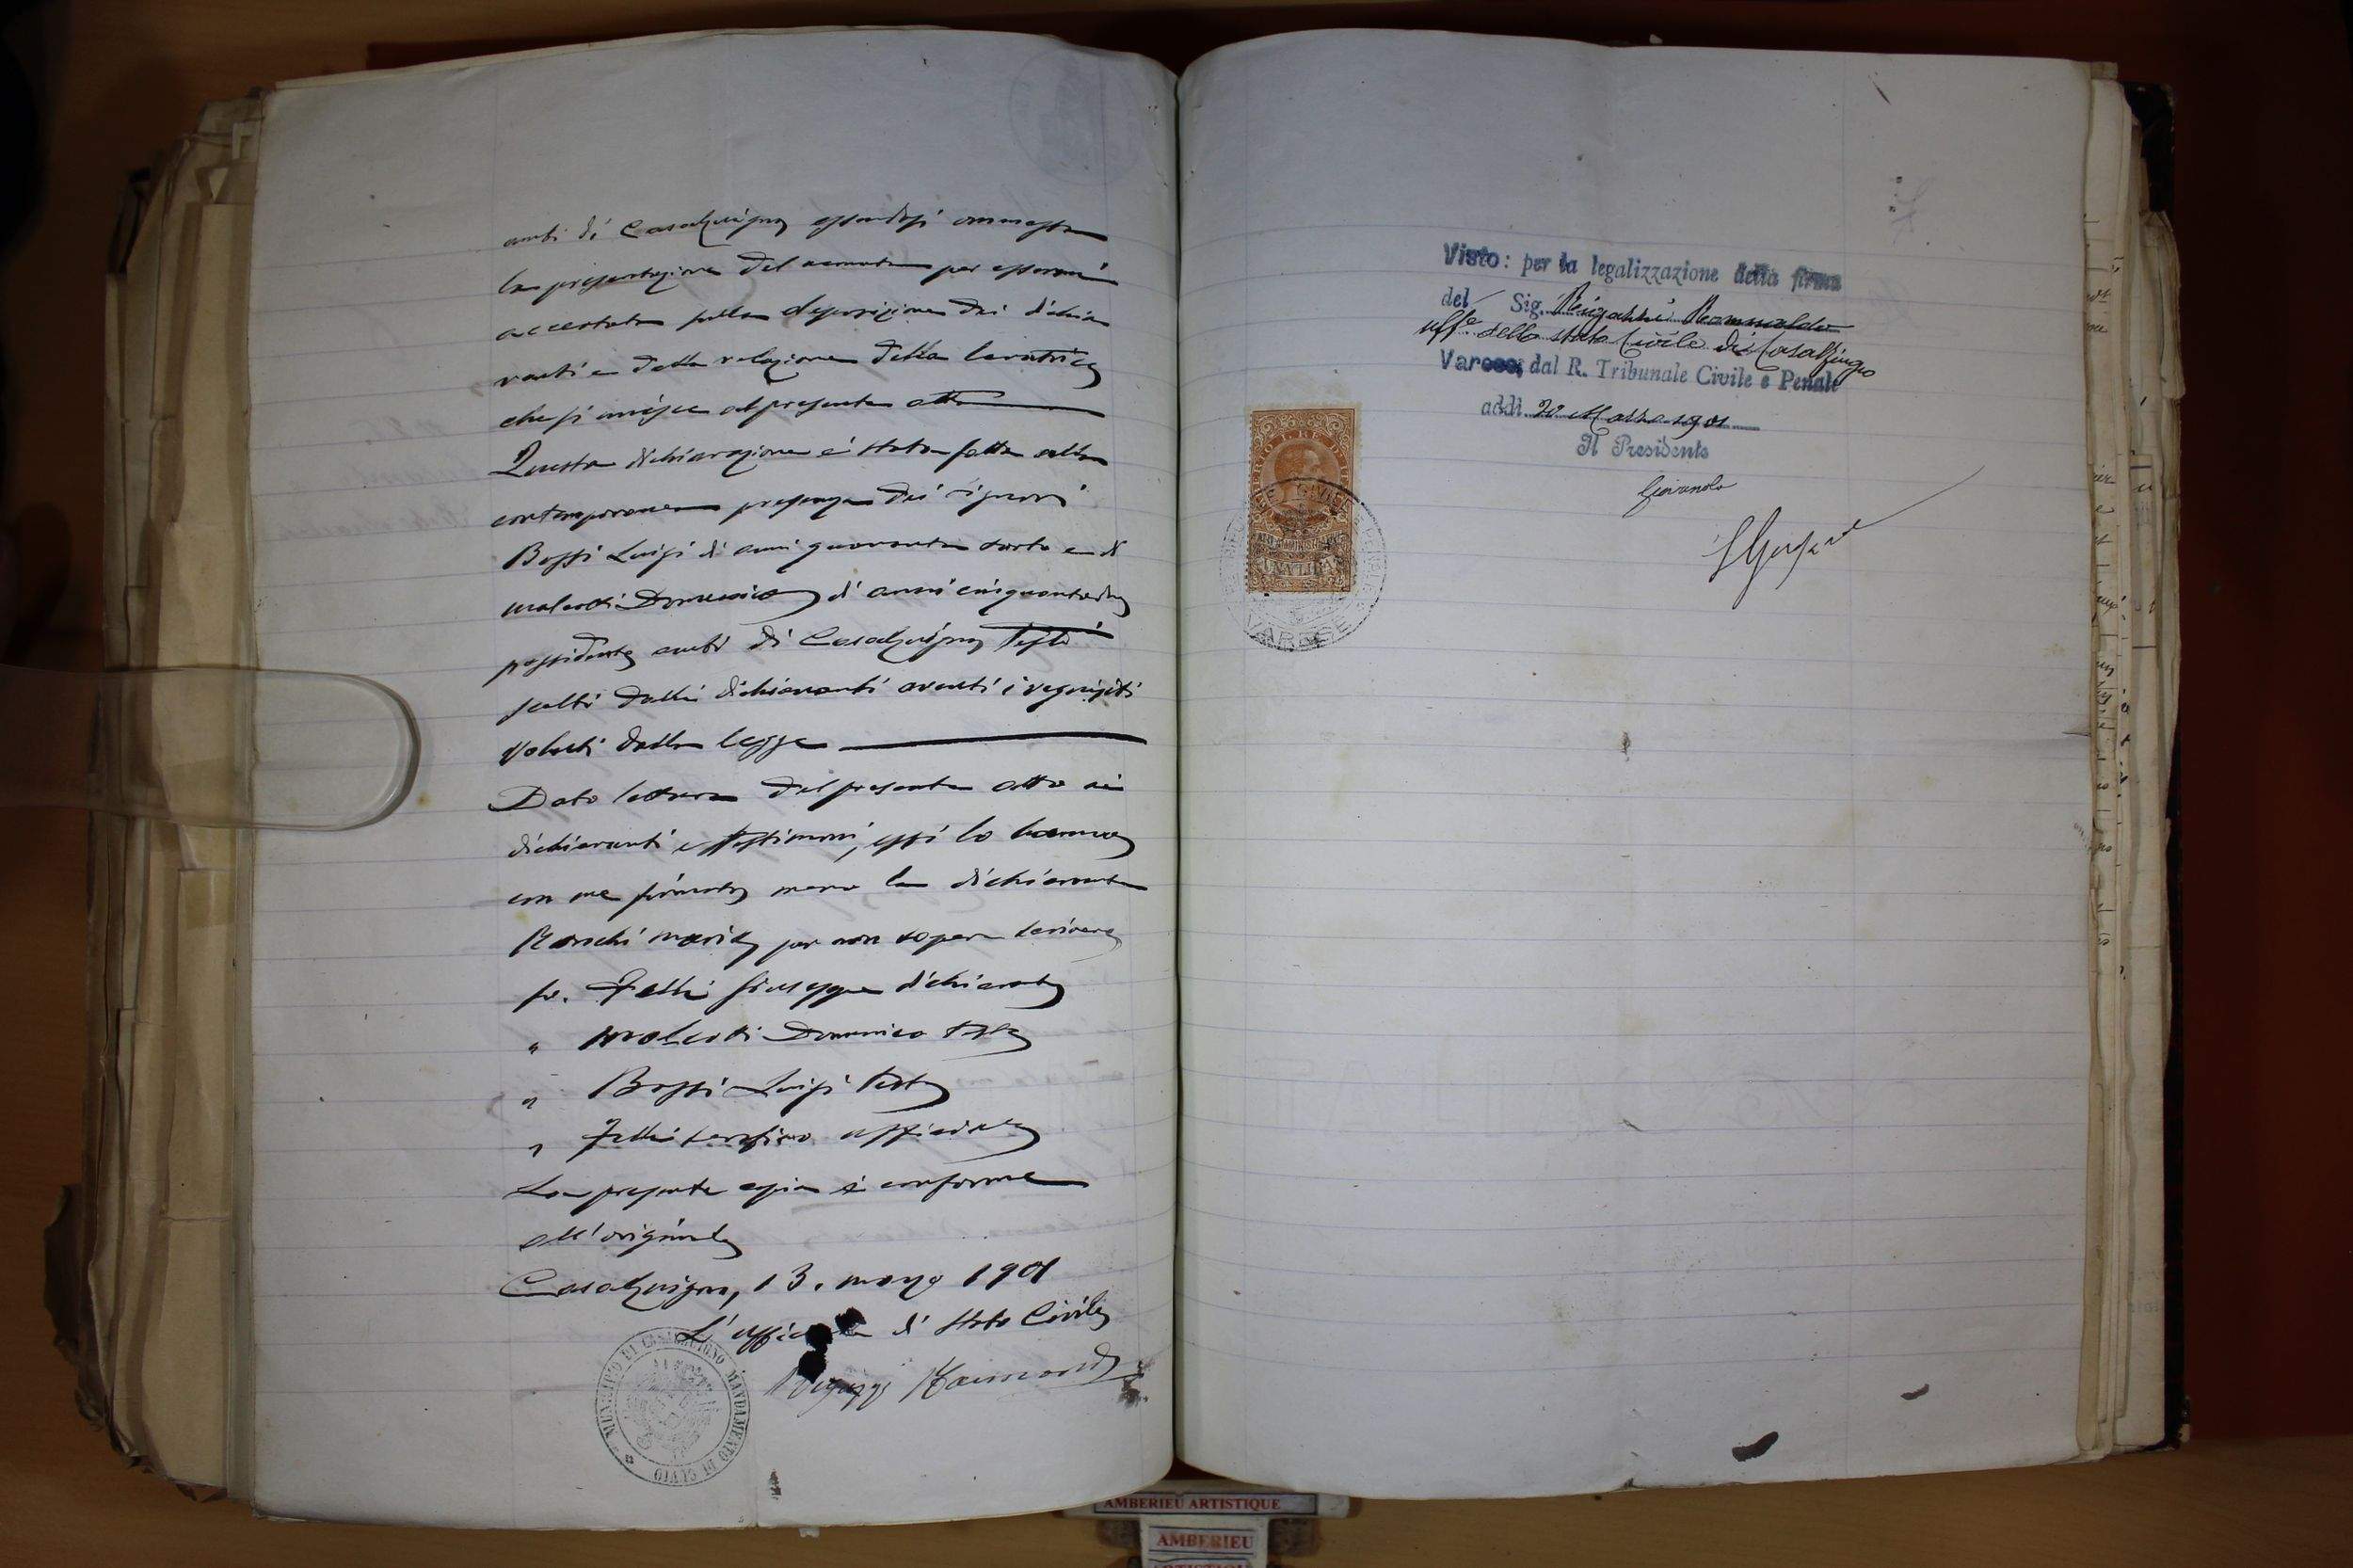 ambi di Casalzuigno essendosi ommessa
la presentazione del neonato per essermi
accertato sulla deposizione dei dichia
ranti e della relazione della levatrice
che si unisce al presente atto
Questa dichiarazione è stata fatta alla
contemporanea presenza dei signori
Bossi Luigi di anni quarantasette e di
Malcotti Domenico di anni cinquantadue
possidente ambi di Casalzuigno Testi
scelti dalli dichiaranti aventi i requisiti
voluti dalla legge
Dato lettura del presente atto ai
dichiaranti e testimoni, essi lo hanno
con me firmato meno la dichiarante
Ronchi Maria per non sapere scrivere
fo. Felli Giuseppe dichiarante
" Malcotti Domenico teste
" Bossi Luigi teste
" Felli Serafino ufficiale
La presente copia è conforme
all'originale
Casalzuigno, 13. marzo 1901
L'ufficiale di Stato Civile
MUNICIPIO DI CASALZUIGNO MANDAMENTO DI CUVIO
Visto: per la legalizzazione della firma
del Sig.
uff.e dello stato Civile di Casalzuigno
Varese, dal R. Tribunale Civile e Penale
addì 20 Marzo 1901
Il Presidente
VARESE
AMBERIEU ARTISTIQUE
AMBERIEU
ARTISTIQUE